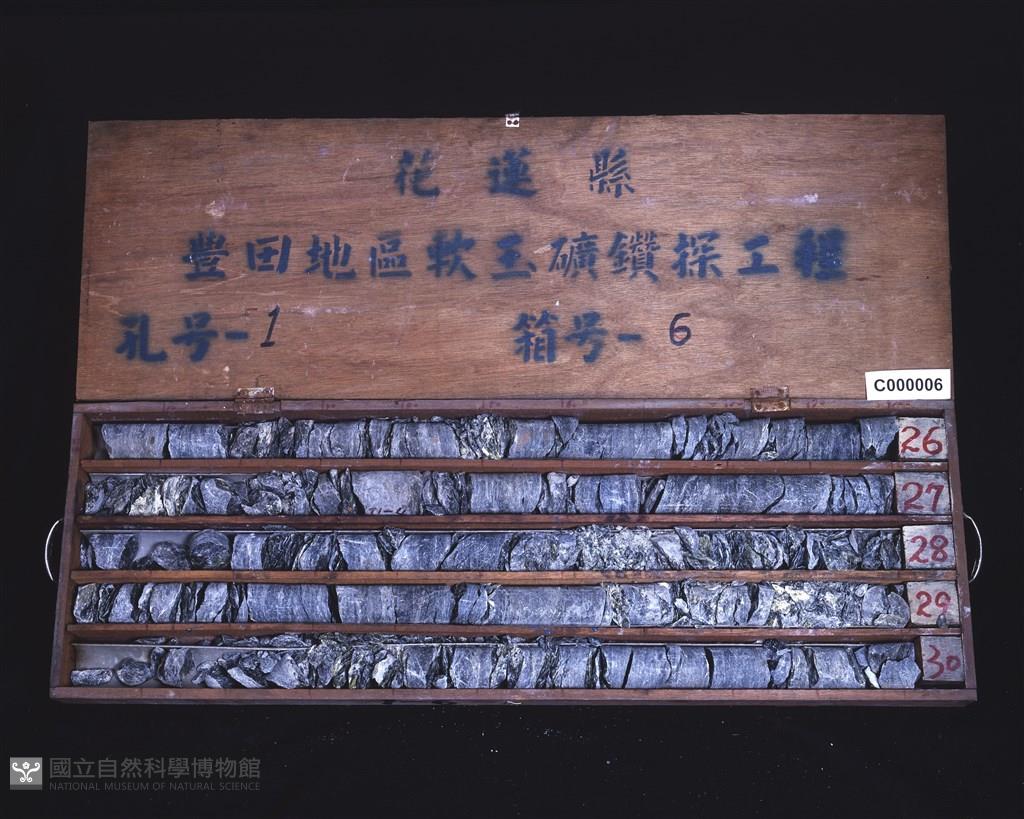 花蓮縣
豐田地區軟玉礦鑽探工程
孔号-1 箱号-6
C000006
26
27
28
29
30
國立自然科學博物館
NATIONAL MUSEUM OF NATURAL SCIENCE